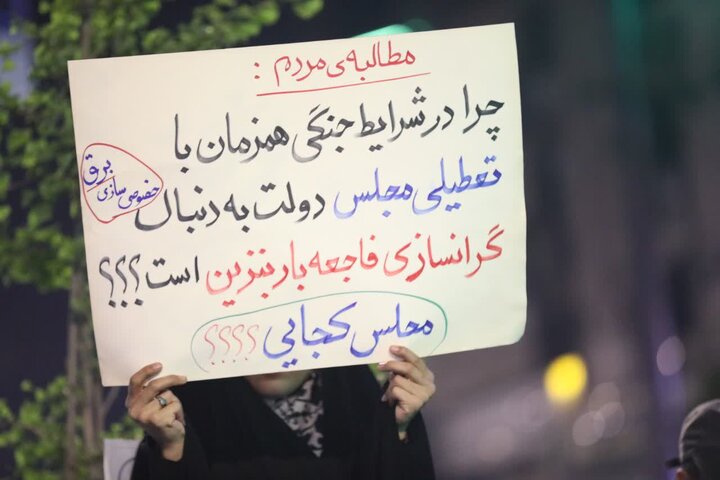 مطالبه‌ی مردم :
چرا در شرایط جنگی همزمان با
تعطیلی مجلس دولت به دنبال
گرانسازی فاجعه بار بنزین است؟؟؟
مجلس کجایی ؟؟؟؟
برق
خصوصی سازی